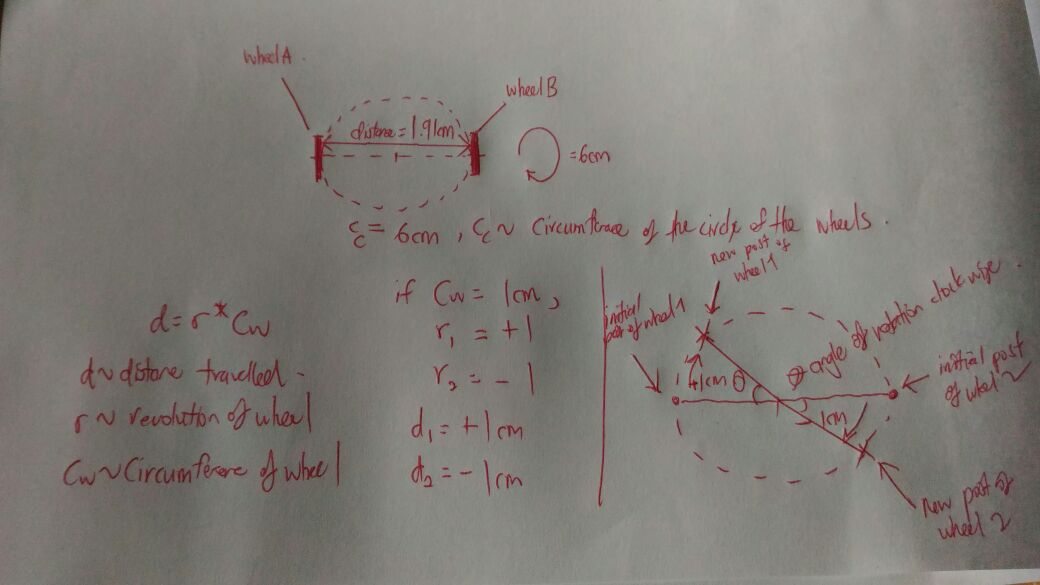 wheel A.
wheel B
distance = 1.91cm
= 6cm
Cc = 6cm, Cc ~ Circumference of the circle of the wheels.
d = r * Cw
d ~ distance travelled -
r ~ revolution of wheel
Cw ~ Circumference of wheel
if Cw = 1cm,
r1 = +1
r2 = - 1
d1 = +1cm
d2 = - 1cm
new post of
wheel 1
initial
of wheel 1
θ angle of rotation clock wise.
+1cm θ
1cm
initial post
of wheel 2
new post of
wheel 2